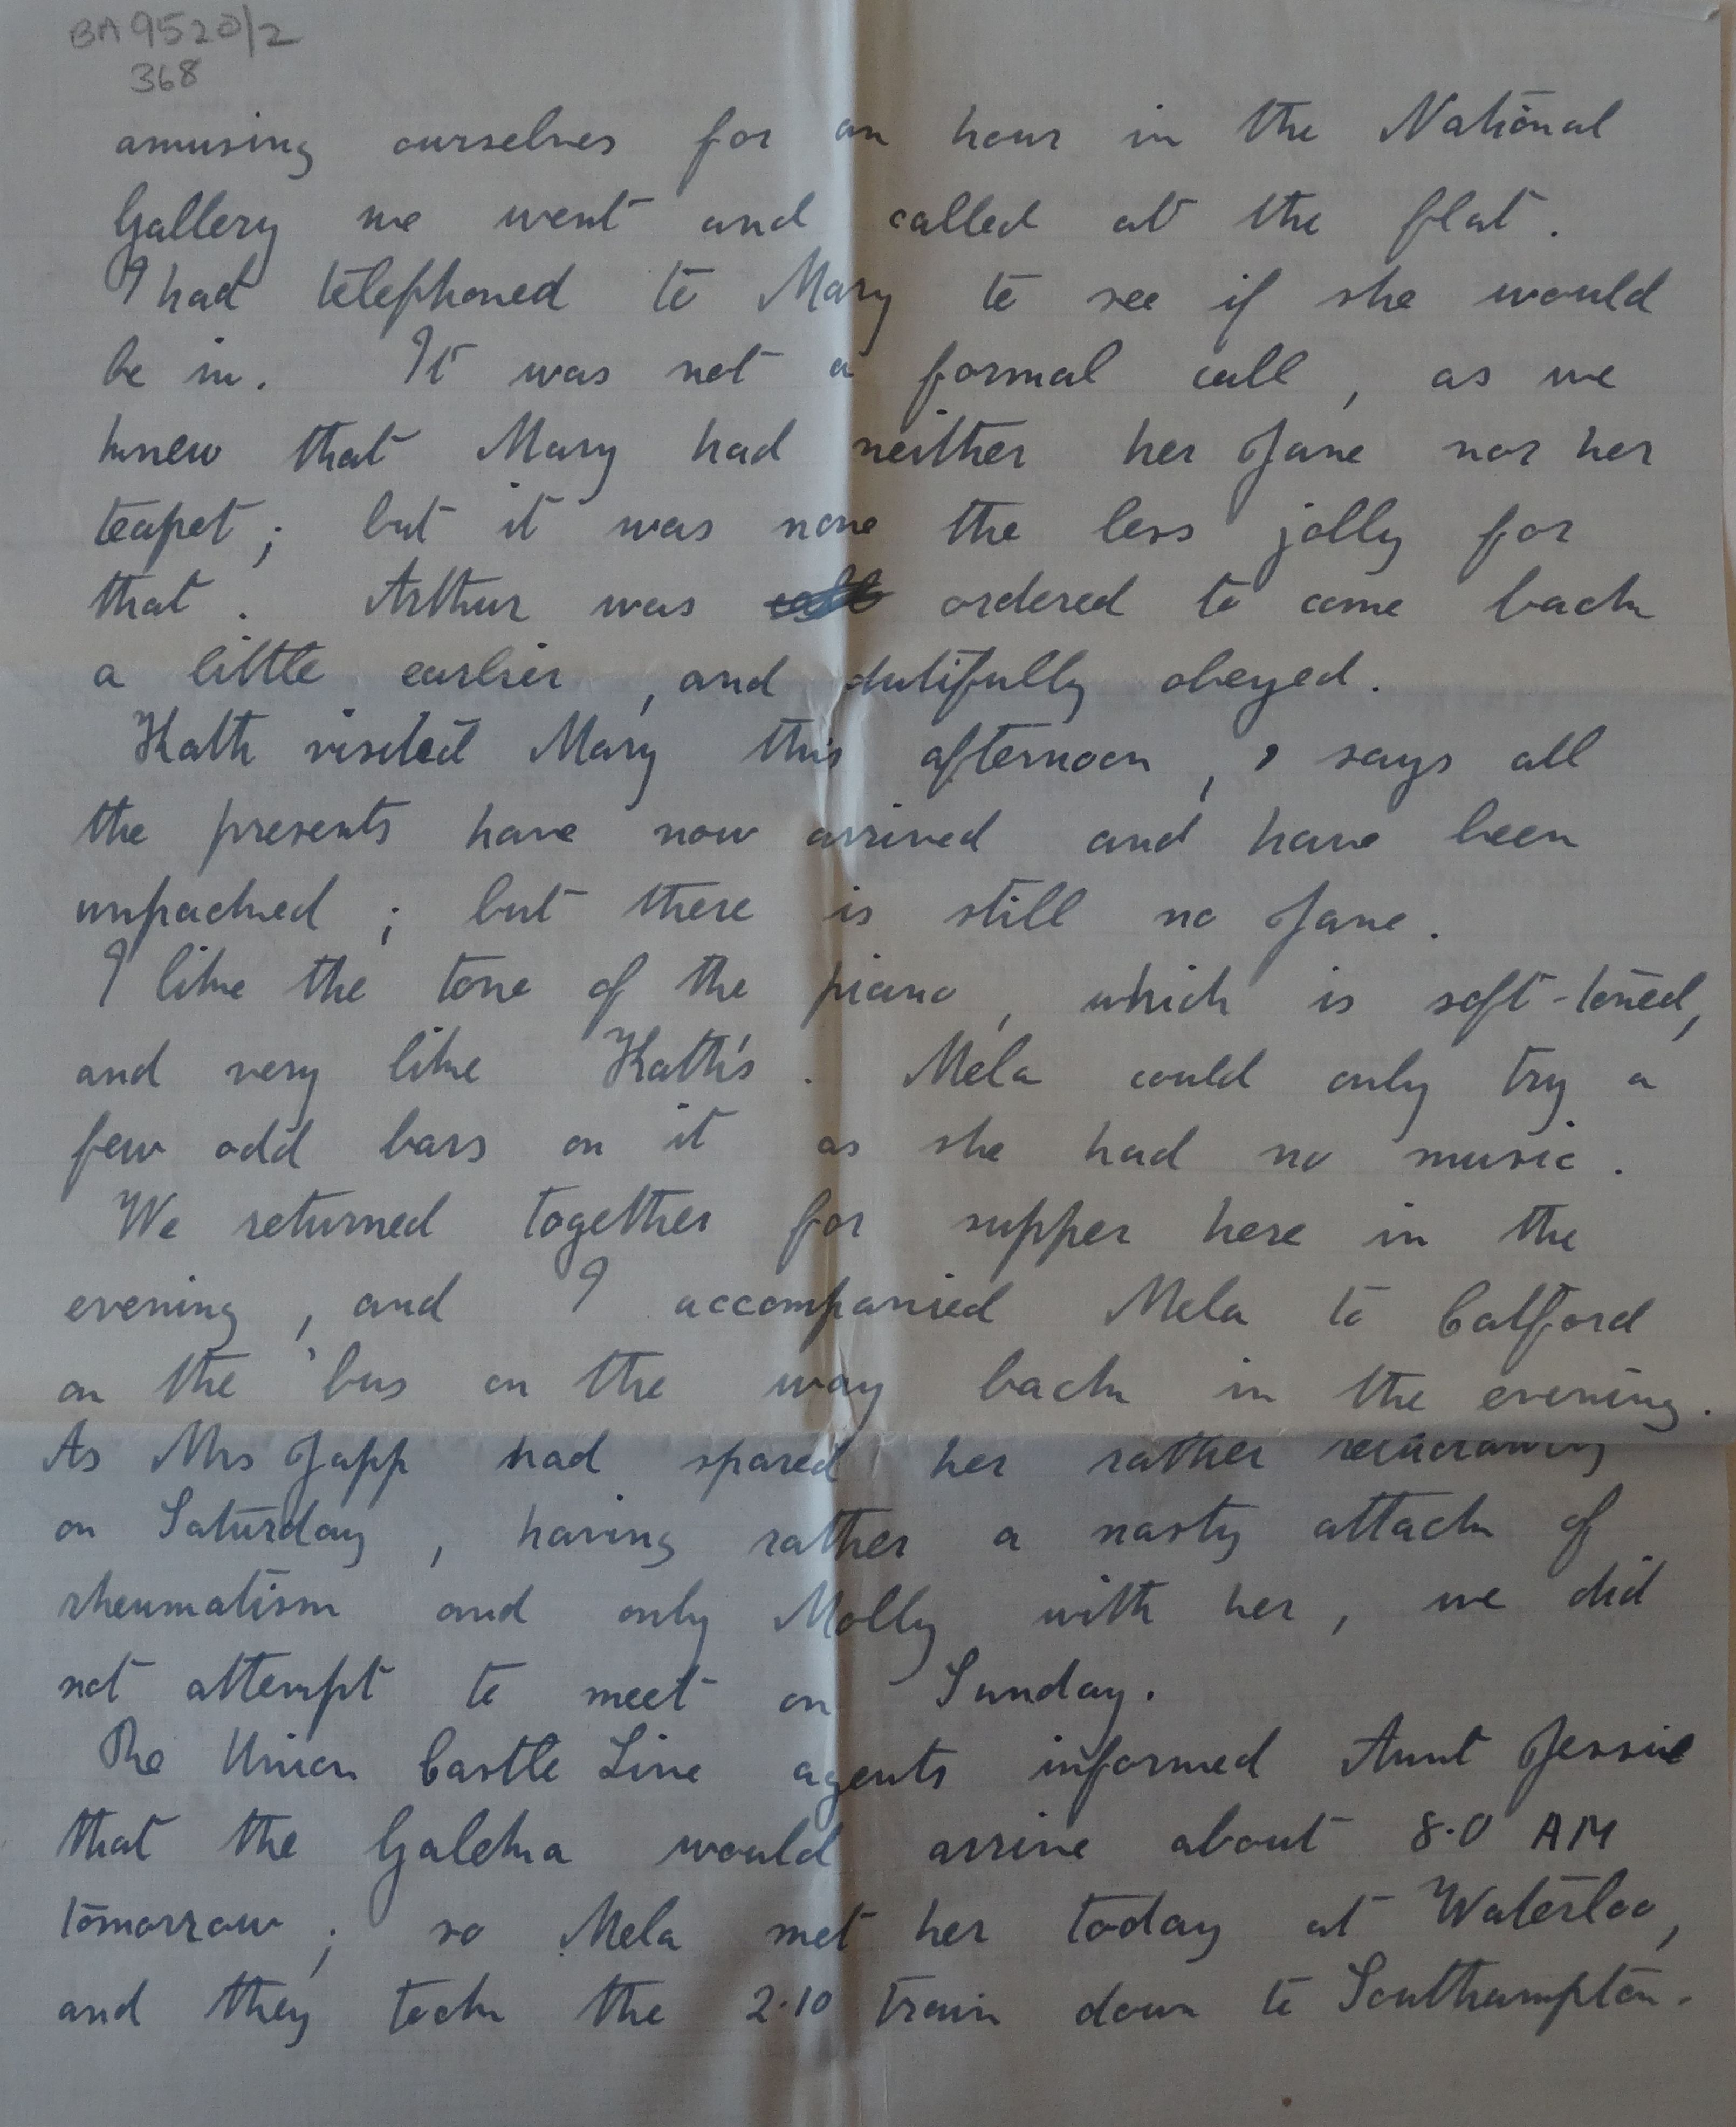 BA 9520/2
368
amusing ourselves for an hour in the National
Gallery we went and called at the flat.
I had telephoned to Mary to see if she would
be in. It was not a formal call, as we
knew that Mary had neither her Jane nor her
teapot; but it was none the less jolly for
that. Arthur was ordered to come back
a little earlier, and dutifully obeyed.
Kath visited Mary this afternoon, & says all
the presents have now arrived and have been
unpacked; but there is still no Jane.
I like the tone of the piano, which is soft-toned,
and very like Kath's. Mela could only try a
few odd bars on it as she had no music.
We returned together for supper here in the
evening, and I accompanied Mela to Catford
on the 'bus on the way back in the evening.
As Mrs Japp had spared her rather reluctantly
on Saturday, having rather a nasty attack of
rheumatism and only Molly with her, we did
not attempt to meet on Sunday.
The Union Castle Line agents informed Aunt Jessie
that the Galeka would arrive about 8.0 AM
tomorrow; so Mela met her today at Waterloo,
and they took the 2.10 train down to Southampton.